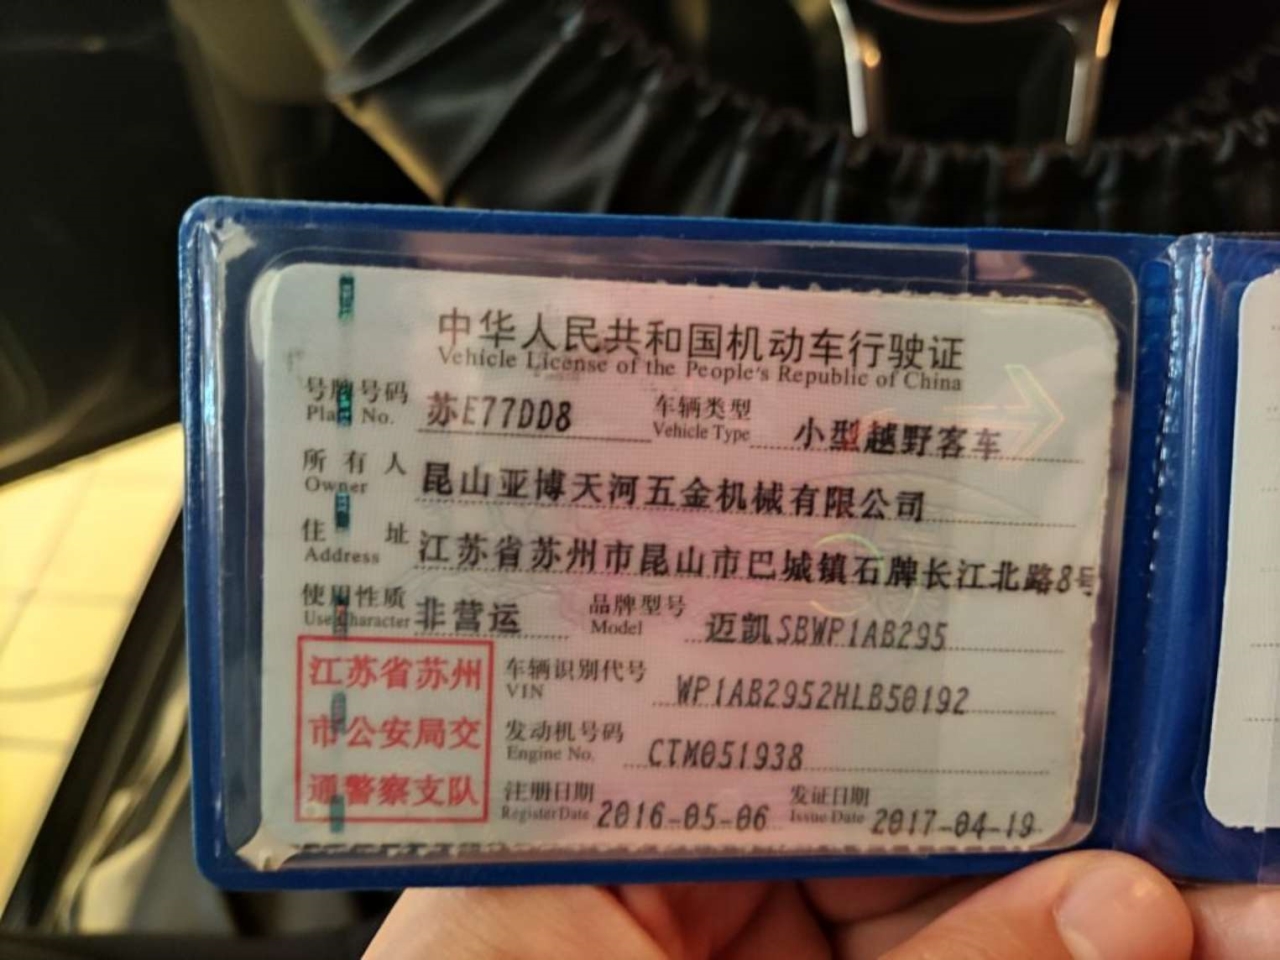 中华人民共和国机动车行驶证
Vehicle License of the People's Republic of China
号牌号码 苏E77DD8 车辆类型 小型越野客车
Plate No. Vehicle Type
所有人 昆山亚博天河五金机械有限公司
Owner
住址 江苏省苏州市昆山市巴城镇石牌长江北路8号
Address
使用性质 非营运 品牌型号 迈凯SBWP1AB295
Use Character Model
江苏省苏州
市公安局交
通警察支队
车辆识别代号 WP1AB2952HLB50192
VIN
发动机号码 CTM051938
Engine No.
注册日期 2016-05-06 发证日期 2017-04-19
Register Date Issue Date